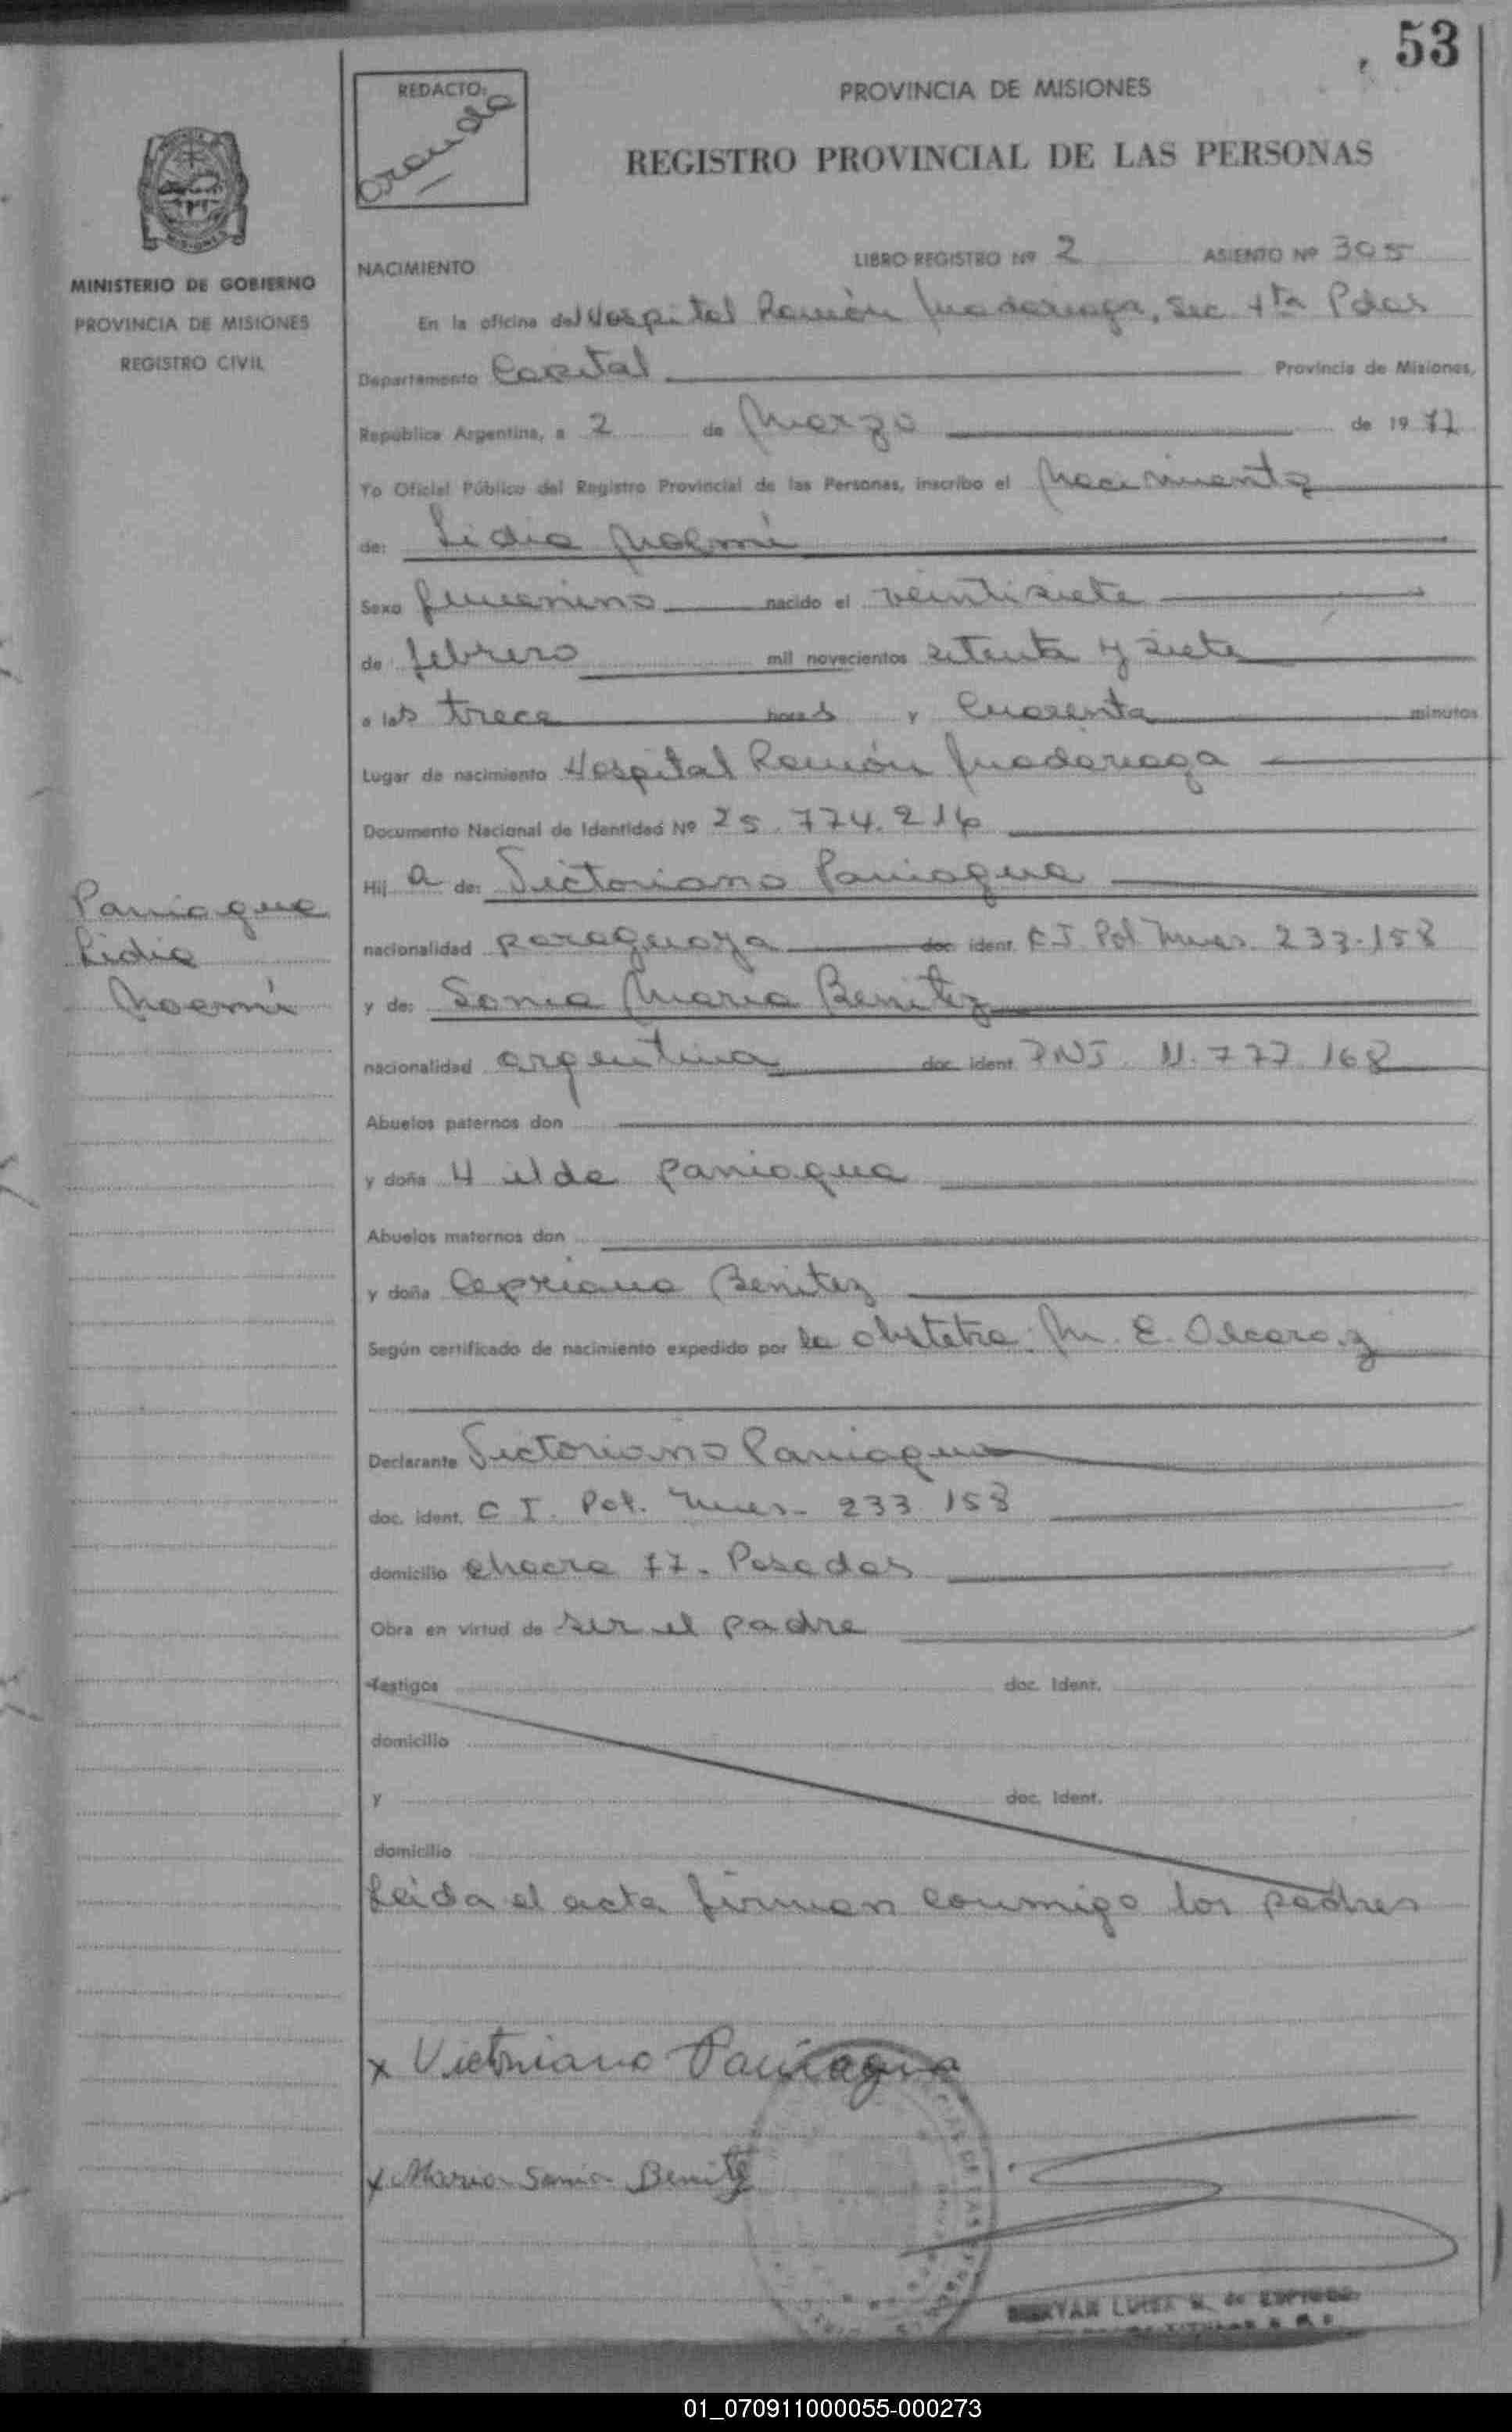 53
REDACTO:
PROVINCIA DE MISIONES
REGISTRO PROVINCIAL DE LAS PERSONAS
MINISTERIO DE GOBIERNO
PROVINCIA DE MISIONES
REGISTRO CIVIL
NACIMIENTO LIBRO REGISTRO Nº 2 ASIENTO Nº 305
En la oficina del Hospital Ramón Madariaga, Sec 4ta Pdas
Departamento Capital Provincia de Misiones,
República Argentina, a 2 de Marzo de 1977
Yo Oficial Público del Registro Provincial de las Personas, inscribo el Nacimiento
de: Lidia Noemí
Sexo femenino nacido el veintisiete
de febrero mil novecientos setenta y siete
a las trece horas y cuarenta minutos
Lugar de nacimiento Hospital Ramón Madariaga
Documento Nacional de Identidad Nº 25.774.216
Hij a de: Victoriano Paniagua
Paniagua
Lidia
Noemí
nacionalidad paraguaya doc ident. C I Pol Mnes 233.158
y de: Sonia Maria Benitez
nacionalidad argentina doc ident DNI 11.777.168
Abuelos paternos don
y doña Hilda Paniagua
Abuelos maternos don
y doña Cepriana Benitez
Según certificado de nacimiento expedido por la obstetra M. E. Alcaraz
Declarante Victoriano Paniagua
doc. ident. C I. Pol. Mnes- 233 158
domicilio chacra 77. Posadas
Obra en virtud de ser el padre
Testigos doc. Ident.
domicilio
y doc. Ident.
domicilio
Leida el acta firman conmigo los padres
x Victoriano Paniagua
x Maria Sonia Benitez
LUISA
01_070911000055-000273